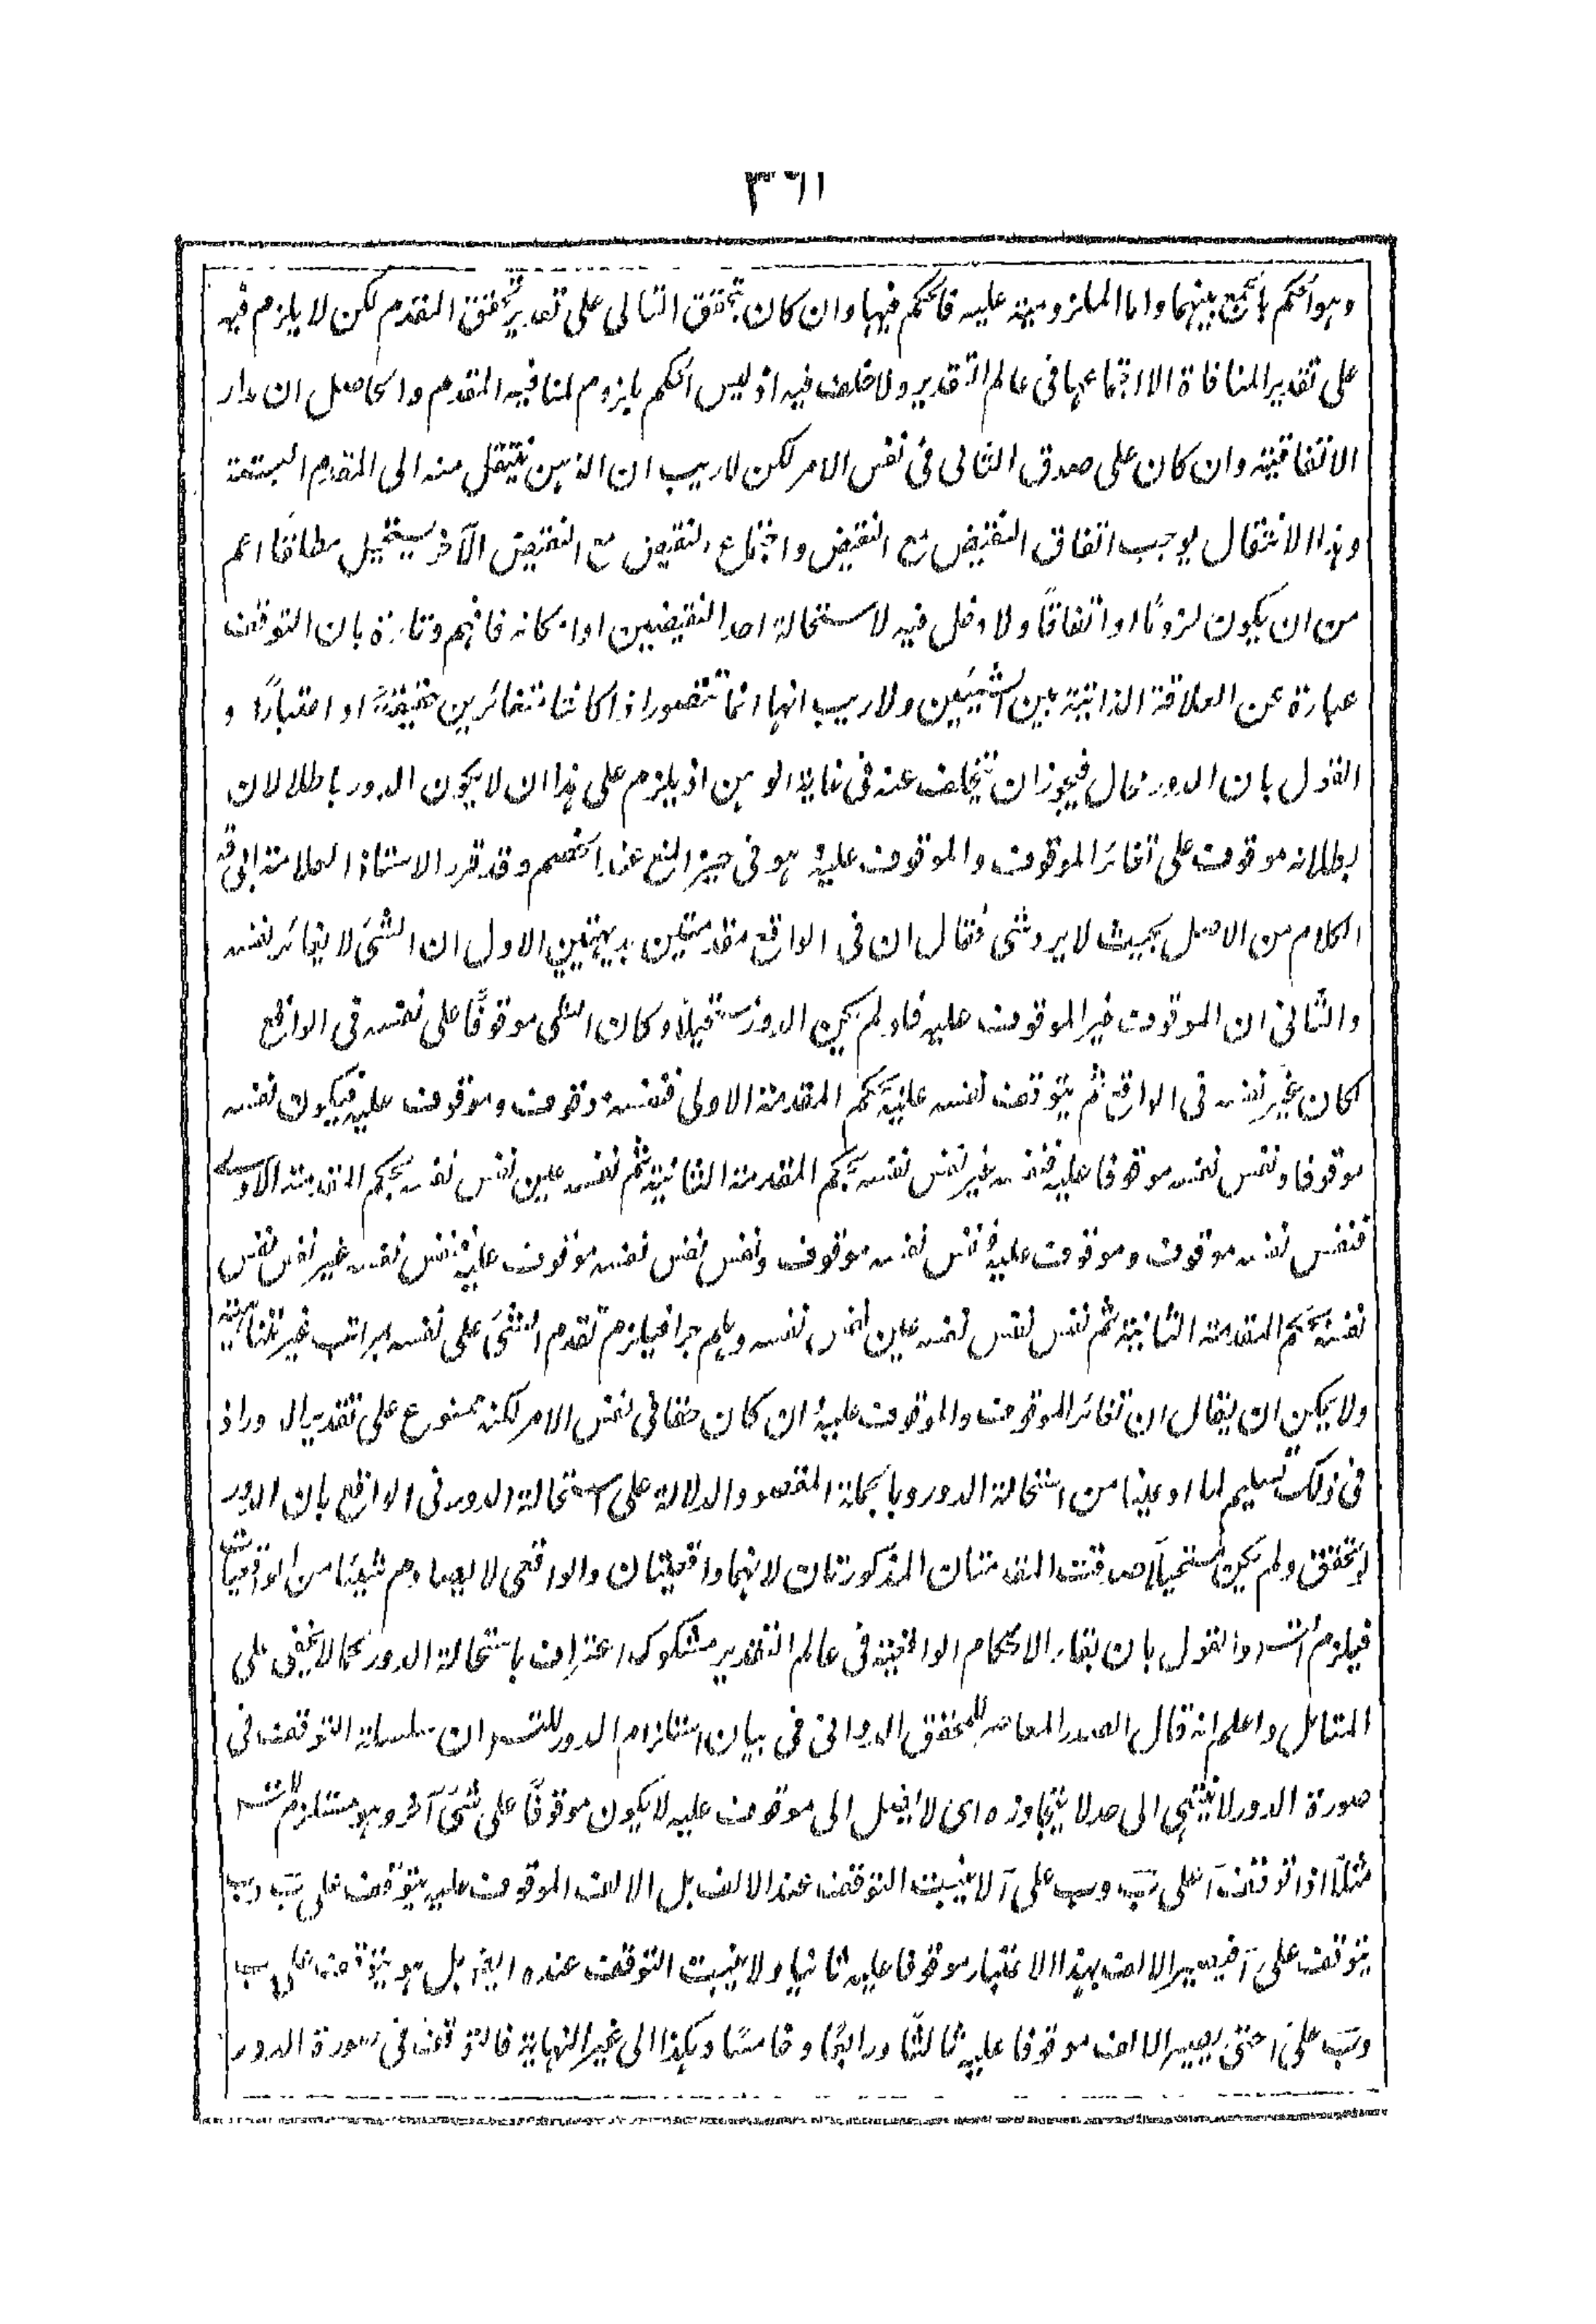 ٣٦١
وهو الحكم بالجمع بينهما واما الملزومية عليه فالحكم فيها وان كان بتحقق التالى على تقدير تحقق المقدم لكن لا يلزم فيه
على تقدير المنافاة الا اجتماعهما فى عالم التقدير ولا خلف فيه اذ ليس الحكم بلزوم لمنافيه المقدم والحاصل ان مدار
الاتفاقية وان كان على صدق التالى فى نفس الامر لكن لا ريب ان الذهن ينتقل منه الى المقدم البتة
وهذا الانتقال يوجب اتفاق النقيض مع النقيض واجتماع النقيض مع النقيض الآخر مستحيل مطلقا اعم
من ان يكون لزومًا او اتفاقًا ولا دخل فيه لاستحالة احد النقيضين او امكانه فافهم وتارة بان التوقف
عبارة عن العلاقة الذاتية بين الشيئين ولا ريب انها انما تتصور اذا كانتا متغائرين حقيقة او اعتبارًا و
القول بان الدور محال فيجوز ان يتخلف عنه فى غاية الوهن اذ يلزم على هذا ان لا يكون الدور باطلا لان
بطلانه موقوف على تغائر الموقوف والموقوف عليه وهو فى حيز المنع عند الخصم وقد قرر الاستاذ العلامة ابى قد
الكلام من الاصل بحيث لا يرد شئ فقال ان فى الواقع مقدمتين بديهيتين الاول ان الشئ لا يغائر نفسه
والثانى ان الموقوف غير الموقوف عليه فلو لم يكن الدور مستحيلًا وكان الشئ موقوفًا على نفسه فى الواقع
لكان غير نفسه فى الواقع ثم يتوقف نفسه عليه بحكم المقدمة الاولى فنفسه موقوف وموقوف عليه فيكون نفسه
موقوفا ونفس نفسه موقوفا عليه فنفسه غير نفس نفسه بحكم المقدمة الثانية ثم نفسه عين نفس نفسه بحكم المقدمة الاولى
فنفس نفسه موقوف وموقوف عليه فنفس نفسه موقوف ونفس نفس نفسه موقوف عليه فنفس نفسه غير نفس نفس
نفسه بحكم المقدمة الثانية ثم نفس نفس نفسه عين نفس نفسه وهلم جرا فيلزم تقدم الشئ على نفسه بمراتب غير متناهية
ولا يمكن ان يقال ان تغائر الموقوف والموقوف عليه ان كان حقا فى نفس الامر لكنه ممنوع على تقدير الدور اذ
فى ذلك تسليم لما ادعينا من استحالة الدور وبالجملة المقصود الدلالة على استحالة الدور فى الواقع بان الدور
لو تحقق ولم يكن مستحيلًا صدقت المقدمتان المذكورتان لانهما واقعيتان والواقعى لا يصادم شيئا من الواقعيات
فيلزم التسلسل والقول بان بقاء الاحكام الواقعية فى عالم التقدير مشكوك اعتراف باستحالة الدور كما لا يخفى على
المتامل واعلم انه قال الصدر المعاصر للمحقق الدوانى فى بيان استلزام الدور للتسلسل ان سلسلة التوقف فى
صورة الدور لا ينتهى الى حد لا يتجاوزه اى لا يصل الى موقوف عليه لا يكون موقوفًا على شئ آخر وهو مستلزم للتسلسل
مثلًا اذا توقف آ على ب وب على آ لا يثبت التوقف عند الالف بل الالف الموقوف عليه يتوقف على ب وب
يتوقف على آ فيصير الالف بهذا الاعتبار موقوفا عليه ثانيا ولا يثبت التوقف عنده ايضا بل هو يتوقف على ب
وب على آ حتى يصير الالف موقوفا عليه ثالثًا ورابعًا وخامسًا وهكذا الى غير النهاية فالتوقف فى صورة الدور